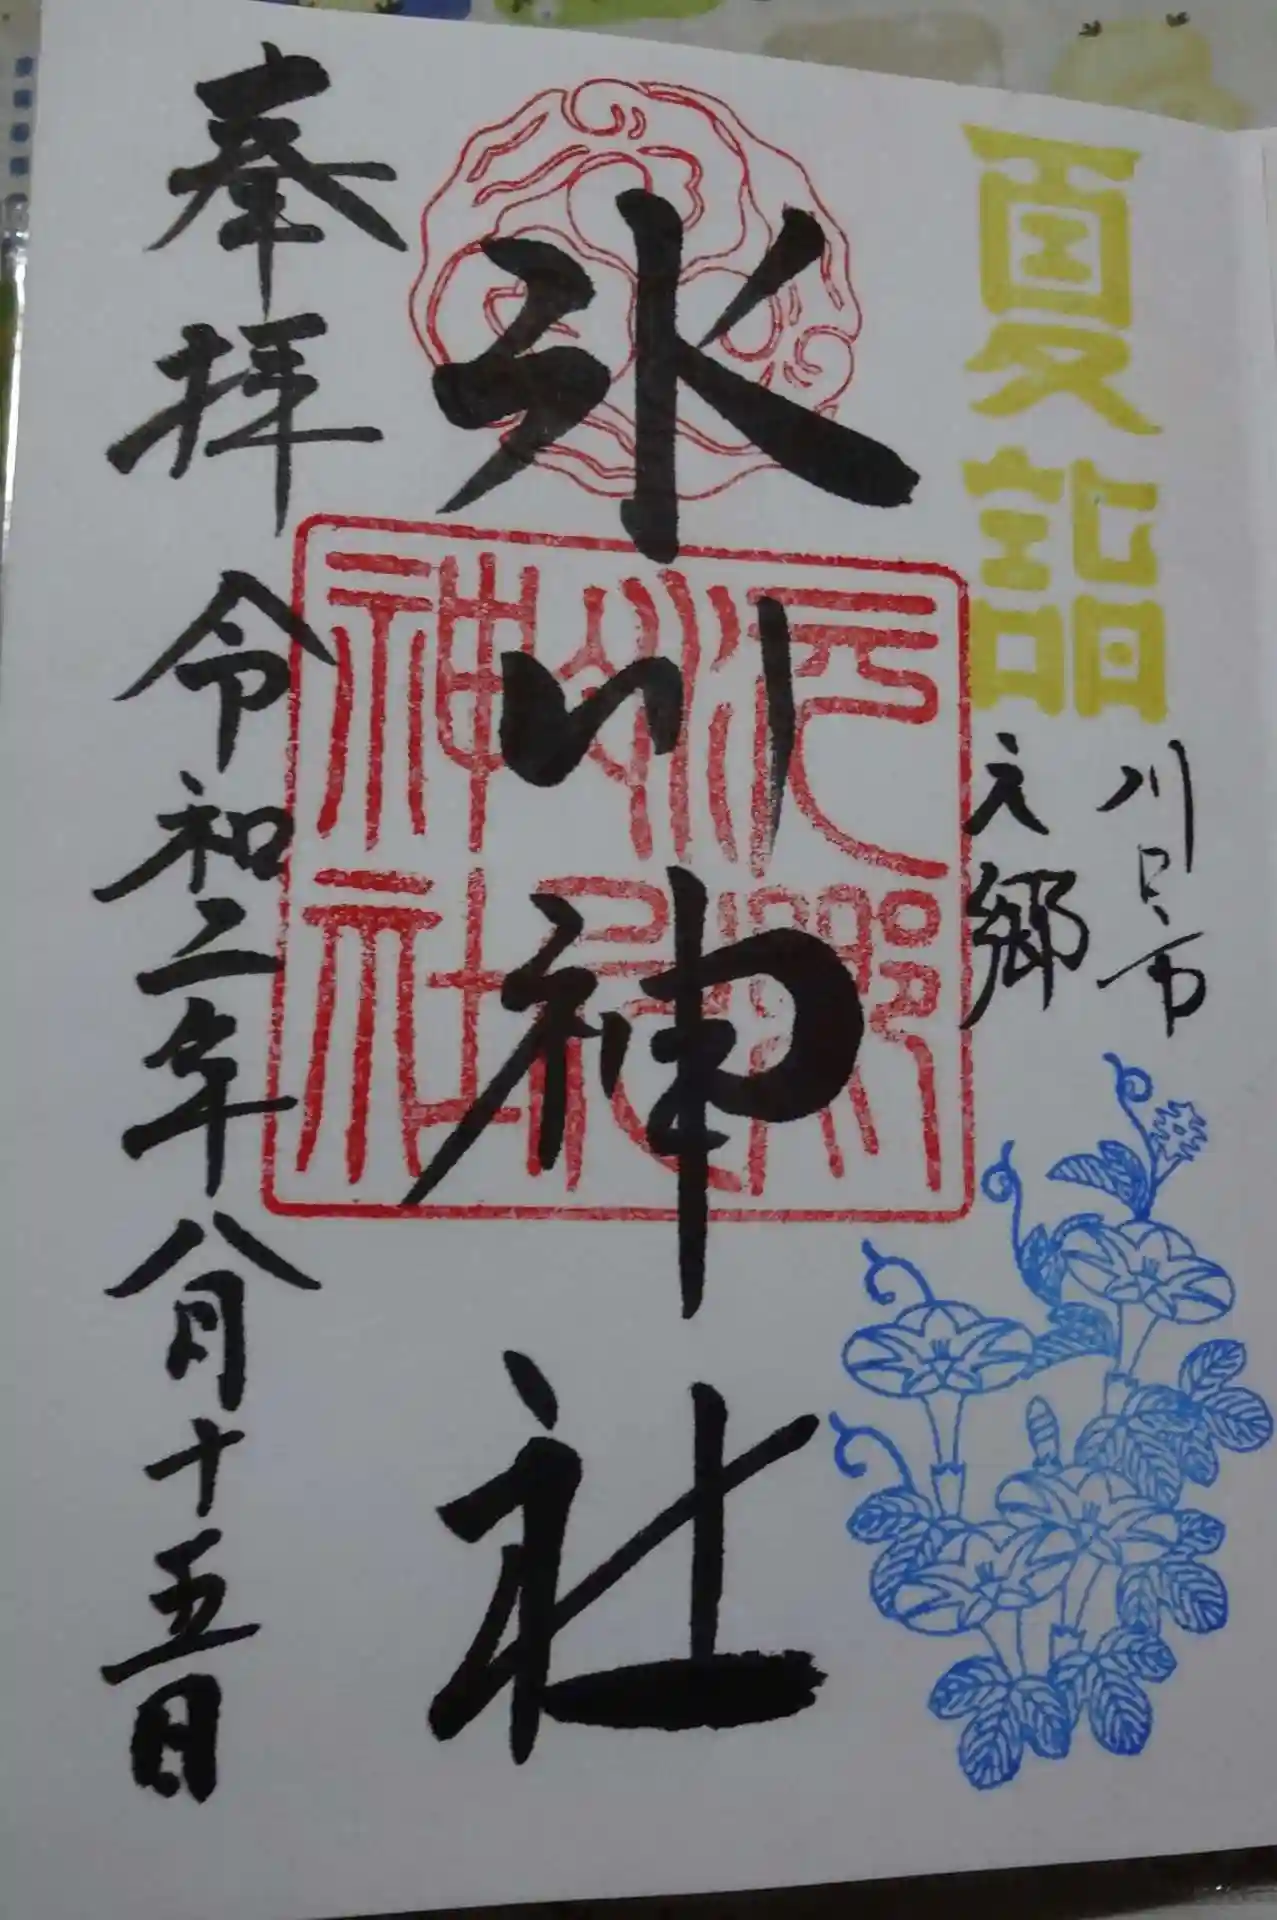 夏詣
川口市
元郷
氷川神社
元郷氷川神社
奉拝
令和二年八月十五日